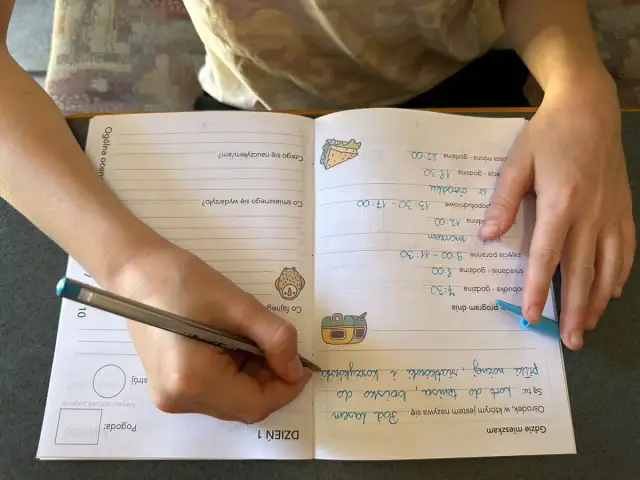 Gdzie mieszkam
Ośrodek, w którym jestem nazywa się Pod lasem
Są tu: kort do tenisa, boisko do
piłki nożnej, siatkówki i koszykówki
program dnia
godzina 7:30
śniadanie - godzina 8:00
zajęcia poranne 9:00 - 11:30
morzem
12:00
popołudniowe 13:30 - 17:00
w ośrodku
godzina 18:30
nocna - godzina 22:00
DZIEŃ 1
Pogoda:
Co
Co śmiesznego się wydarzyło?
Czego się nauczyłem/am?
Ogólna
10